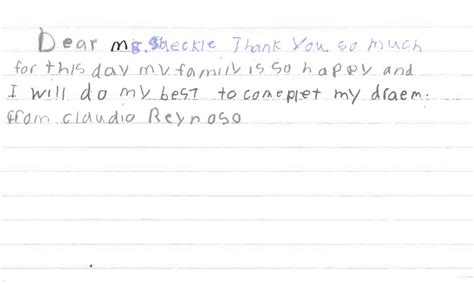 Dear mr. Sheckle Thank You so much
for this day my family is so happy and
I will do my best to comepplet my draem.
from claudio Reynoso